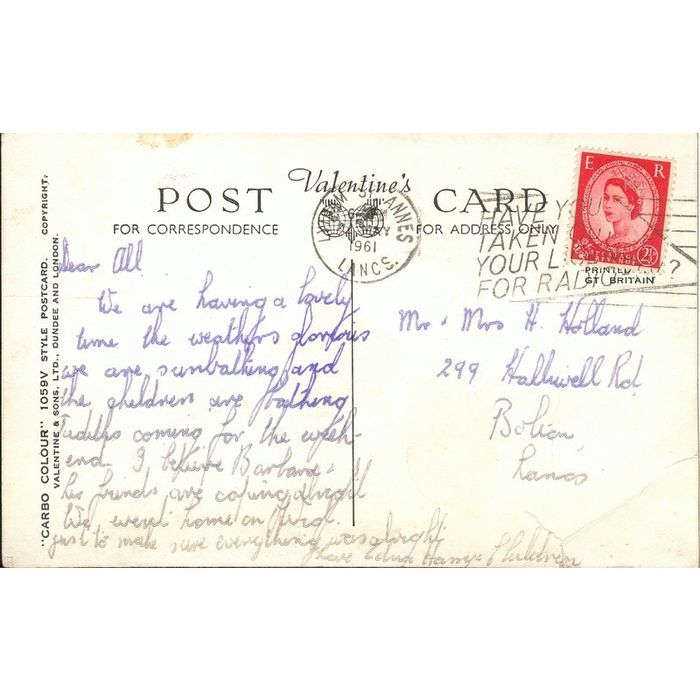 "CARBO COLOUR" 1059V STYLE POSTCARD. COPYRIGHT.
VALENTINE & SONS, LTD., DUNDEE AND LONDON.
Valentine's
POST CARD
FOR CORRESPONDENCE
FOR ADDRESS ONLY
LYTHAM ST. ANNES
MAY
1961
LANCS.
HAVE YOU
TAKEN OUT
YOUR L
FOR RADIO ?
E R
POSTAGE REVENUE
2½
PRINTED IN
GT BRITAIN
Dear All
We are having a lovely
time the weathers glorious
we are sunbathing and
the children are bathing
coming for the week-
end. I believe Barbara &
friends are coming
We went home on
just to make sure everything was alright
Love Harry & Children
Mr & Mrs H. Holland
299 Halliwell Rd
Bolton
Lancs